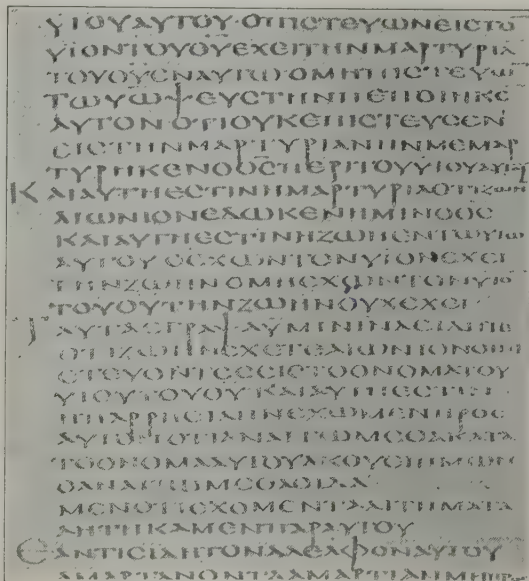 ΥΙΟΥΑΥΤΟΥ·ΟΠΙСΤΕΥΩΝΕΙСΤΟ
ΥΙΟΝΤΟΥΘΥΕΧΕΙΤΗΝΜΑΡΤΥΡΙΑ
ΤΟΥΘΥΕΝΑΥΤΩ·ΟΜΗΠΙСΤΕΥΩ
ΤΩΥΩΨΕΥСΤΗΝΠΕΠΟΙΗΚΕ
ΑΥΤΟΝ·ΟΤΙΟΥΚΕΠΙСΤΕΥСΕΝ
ΕΙСΤΗΝΜΑΡΤΥΡΙΑΝΗΝΜΕΜΑΡ
ΤΥΡΗΚΕΝΟΘСΠΕΡΙΤΟΥΥΙΟΥΑΥΤΟΥ
ΚΑΙΑΥΤΗΕСΤΙΝΗΜΑΡΤΥΡΙΑΟΤΙΖΩΗΝ
ΑΙΩΝΙΟΝΕΔΩΚΕΝΗΜΙΝΟΘС
ΚΑΙΑΥΤΗΕСΤΙΝΗΖΩΗΕΝΤΩΥΙΩ
ΑΥΤΟΥ ΟΕΧΩΝΤΟΝΥΙΟΝΕΧΕΙ
ΤΗΝΖΩΗΝΟΜΗΕΧΩΝΤΟΝΥΙΟ
ΤΟΥΘΥΤΗΝΖΩΗΝΟΥΧΕΧΕΙ
ΤΑΥΤΑΕΓΡΑΨΑΥΜΙΝΙΝΑΕΙΔΗΤΕ
ΟΤΙΖΩΗΝΕΧΕΤΕΑΙΩΝΙΟΝΟΙΠΙ
СΤΕΥΟΝΤΕСΕΙСΤΟΟΝΟΜΑΤΟΥ
ΥΙΟΥΤΟΥΘΥ ΚΑΙΑΥΤΗΕСΤΙΝ
ΗΠΑΡΡΗСΙΑΗΝΕΧΩΜΕΝΠΡΟС
ΑΥΤΟΝΟΤΙΑΝΑΙΤΩΜΕΘΑΚΑΤΑ
ΤΟΟΝΟΜΑΑΥΤΟΥΑΚΟΥΕΙΗΜΩΝ
ΟΑΝΑΙΤΩΜΕΘΑΟΙΔΑ
ΜΕΝΟΤΙΕΧΟΜΕΝΤΑΑΙΤΗΜΑΤΑ
ΑΗΤΗΚΑΜΕΝΠΑΡΑΥΤΟΥ
ΕΑΝΤΙСΙΔΗΤΟΝΑΔΕΛΦΟΝΑΥΤΟΥ
ΑΜΑΡΤΑΝΟΝΤΑΑΜΑΡΤΙΑΝΜΗΠΡ